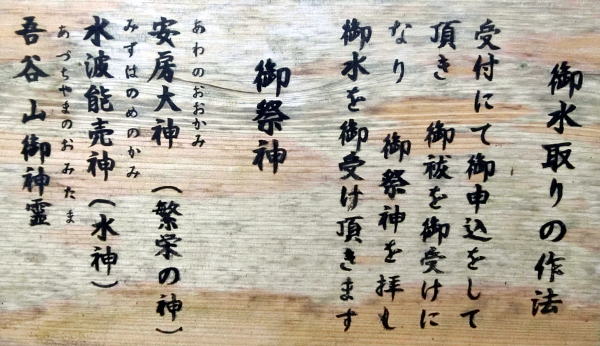 御水取りの作法
受付にて御申込をして
頂き 御祓を御受けに
なり 御祭神を拝し
御水を御受け頂きます
御祭神
あわのおおかみ
安房大神（繁栄の神）
みずはのめのかみ
水波能売神（水神）
あづちやまのおみたま
吾谷山御神霊